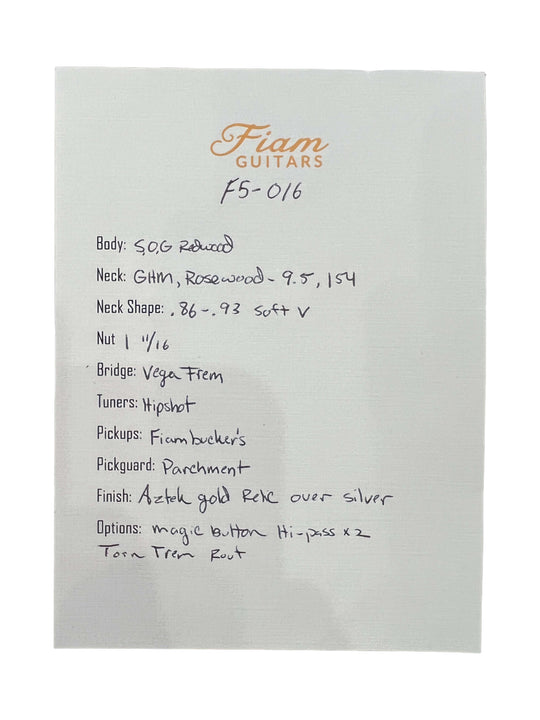 Fiam
GUITARS
F5-016
Body: S,O,G Redwood
Neck: GHM, Rosewood - 9.5, 154
Neck Shape: .86-.93 Soft V
Nut 1 11/16
Bridge: Vega Trem
Tuners: Hipshot
Pickups: Fiambucker's
Pickguard: Parchment
Finish: Aztek gold Relic over silver
Options: magic button Hi-pass x2
Torn Trem Rout